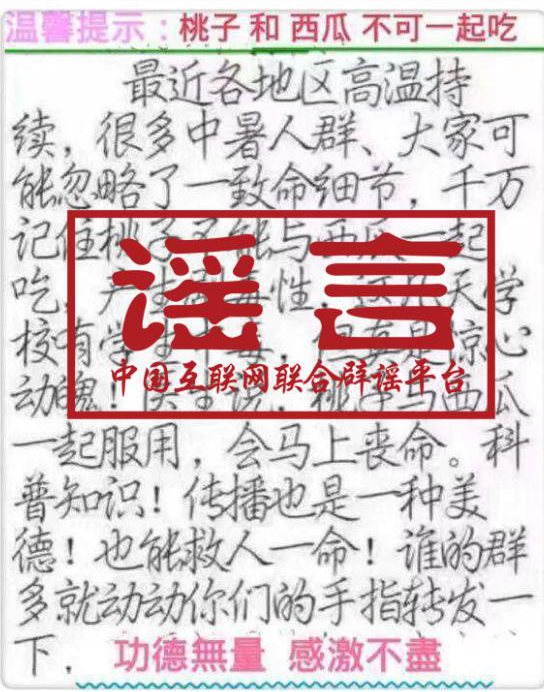 温馨提示：桃子 和 西瓜 不可一起吃
最近各地区高温持
续，很多中暑人群、大家可
能忽略了一致命细节，千万
记住桃子不能与西瓜一起
吃，产生 毒性，这几天学
校有学生中毒，但真是惊心
动魄！医生说，桃子与西瓜
谣言
中国互联网联合辟谣平台
一起服用，会马上丧命。科
普知识！传播也是一种美
德！也能救人一命！谁的群
多就动动你们的手指转发一
下．
功德無量 感激不盡